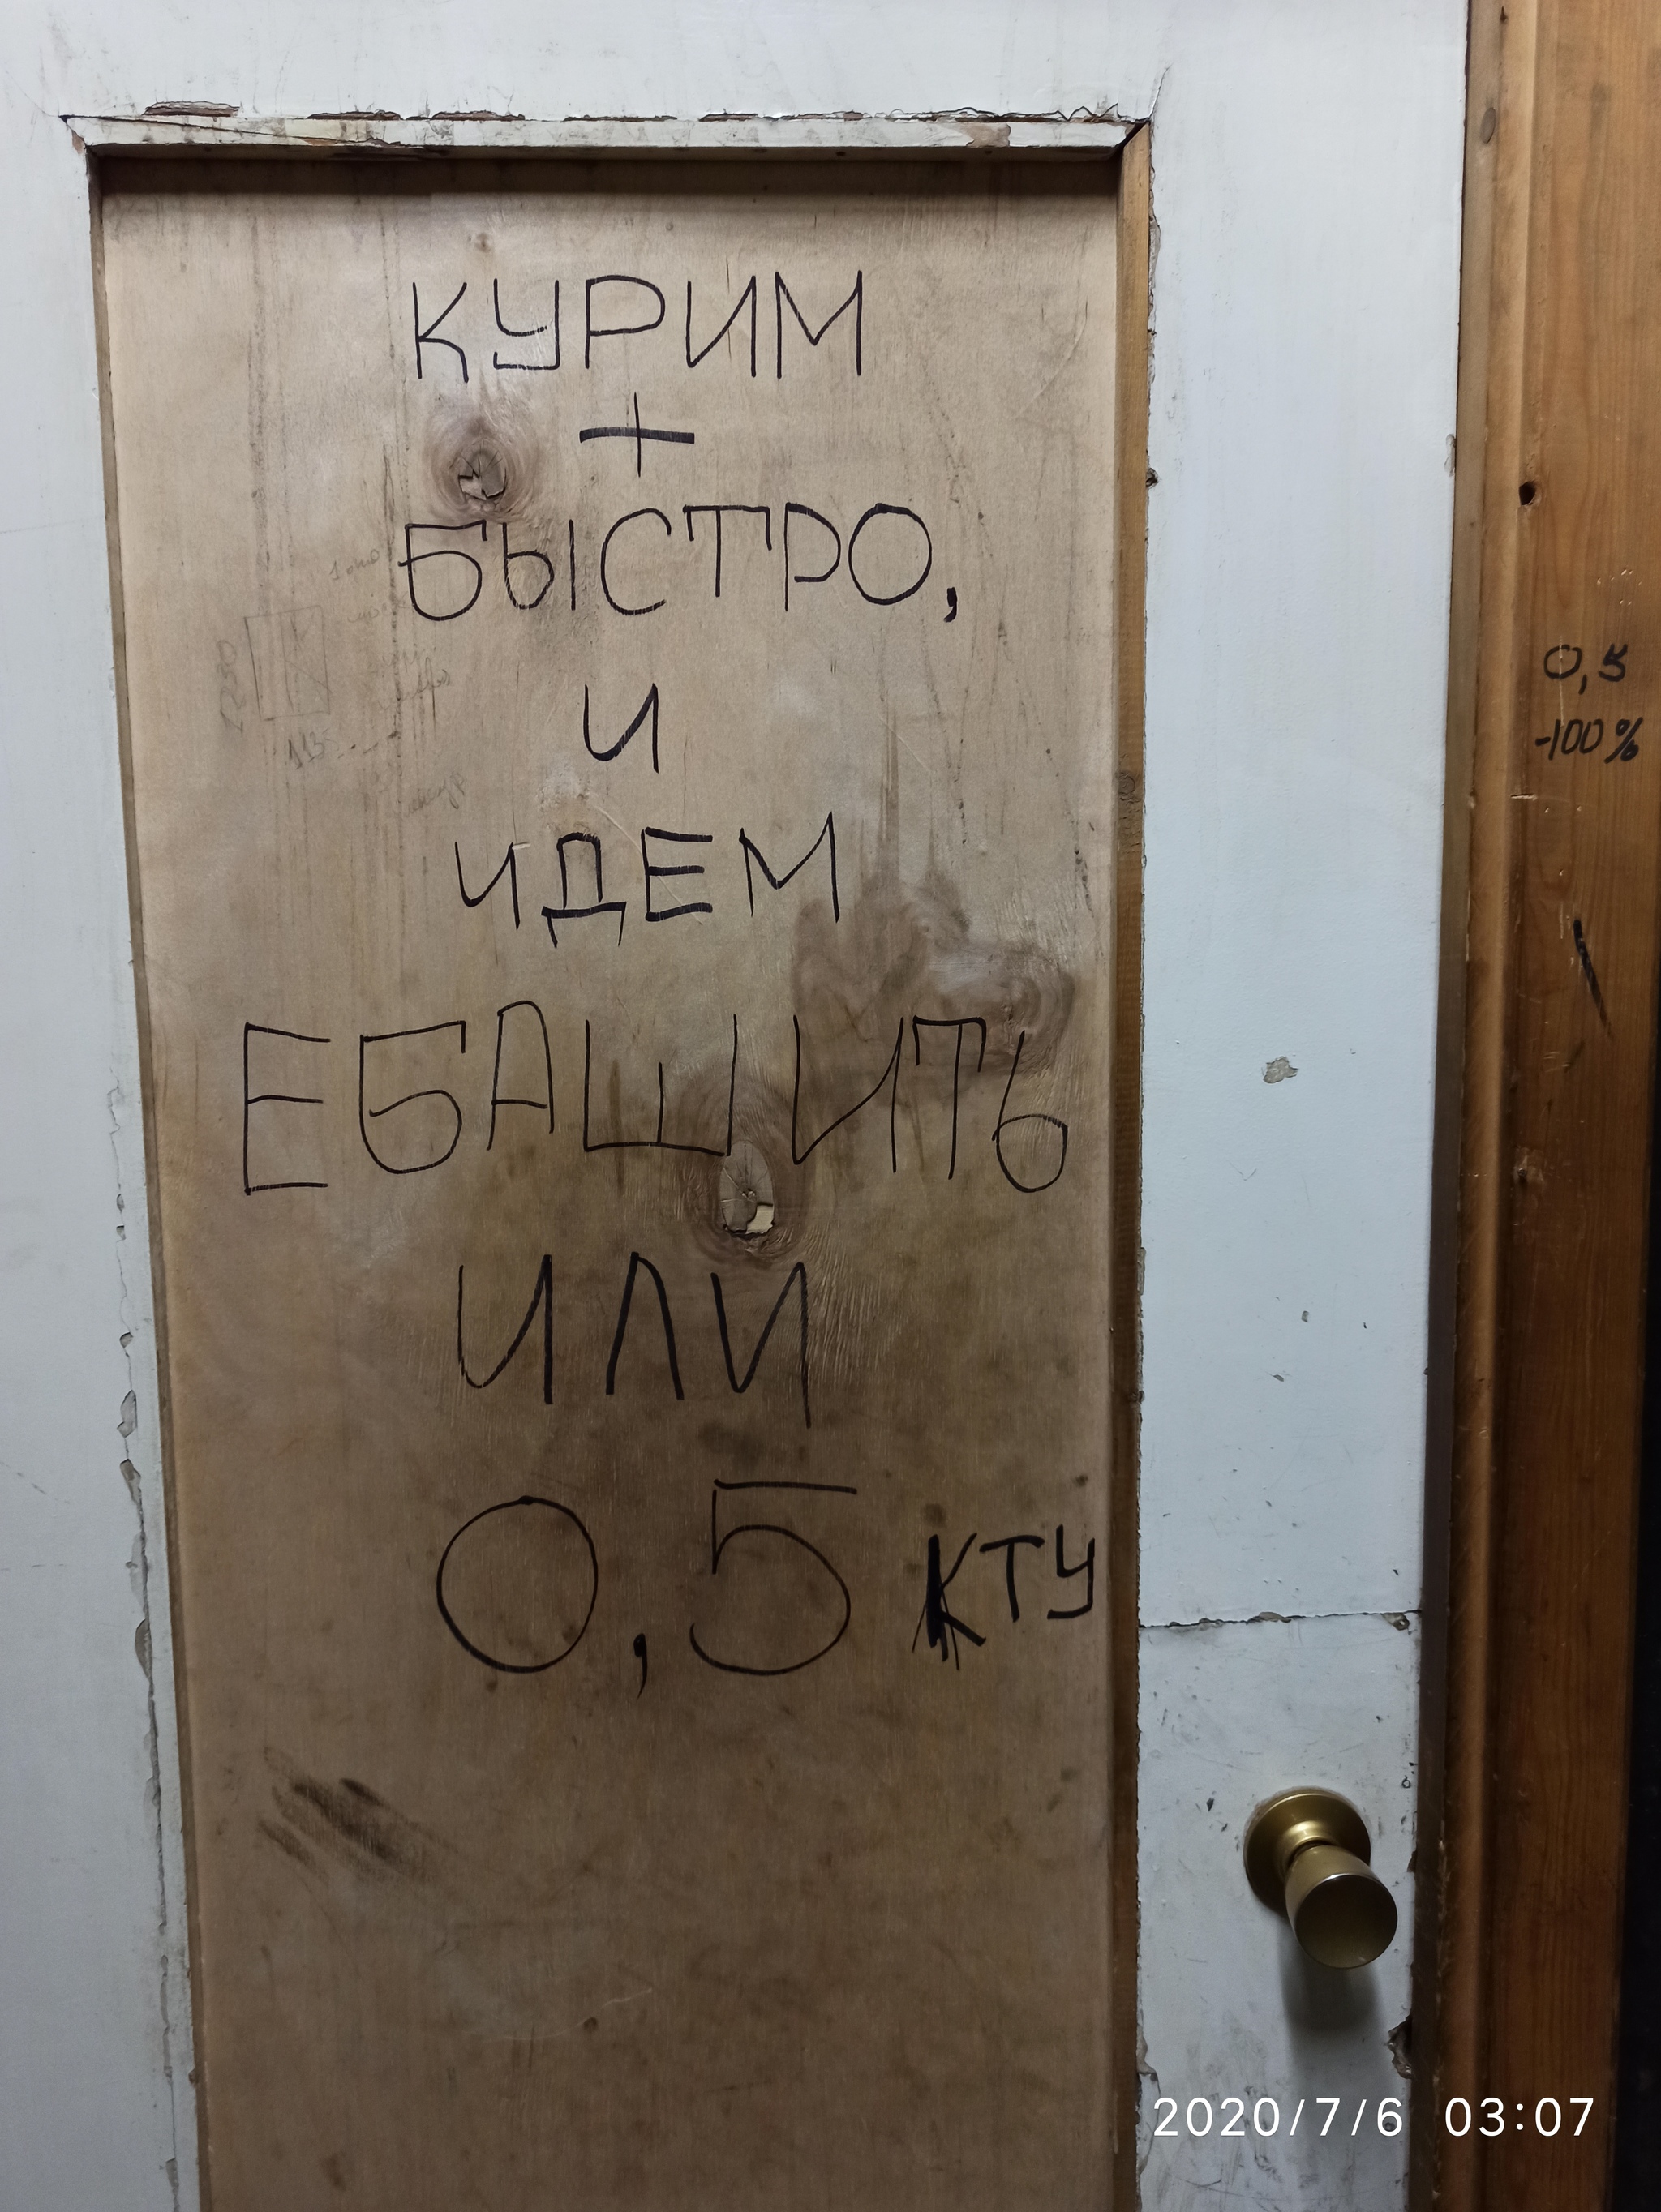 КУРИМ
+
БЫСТРО,
И
ИДЕМ
ЕБАШИТЬ
ИЛИ
0,5 КТУ
0,5
-100%
2020/7/6 03:07